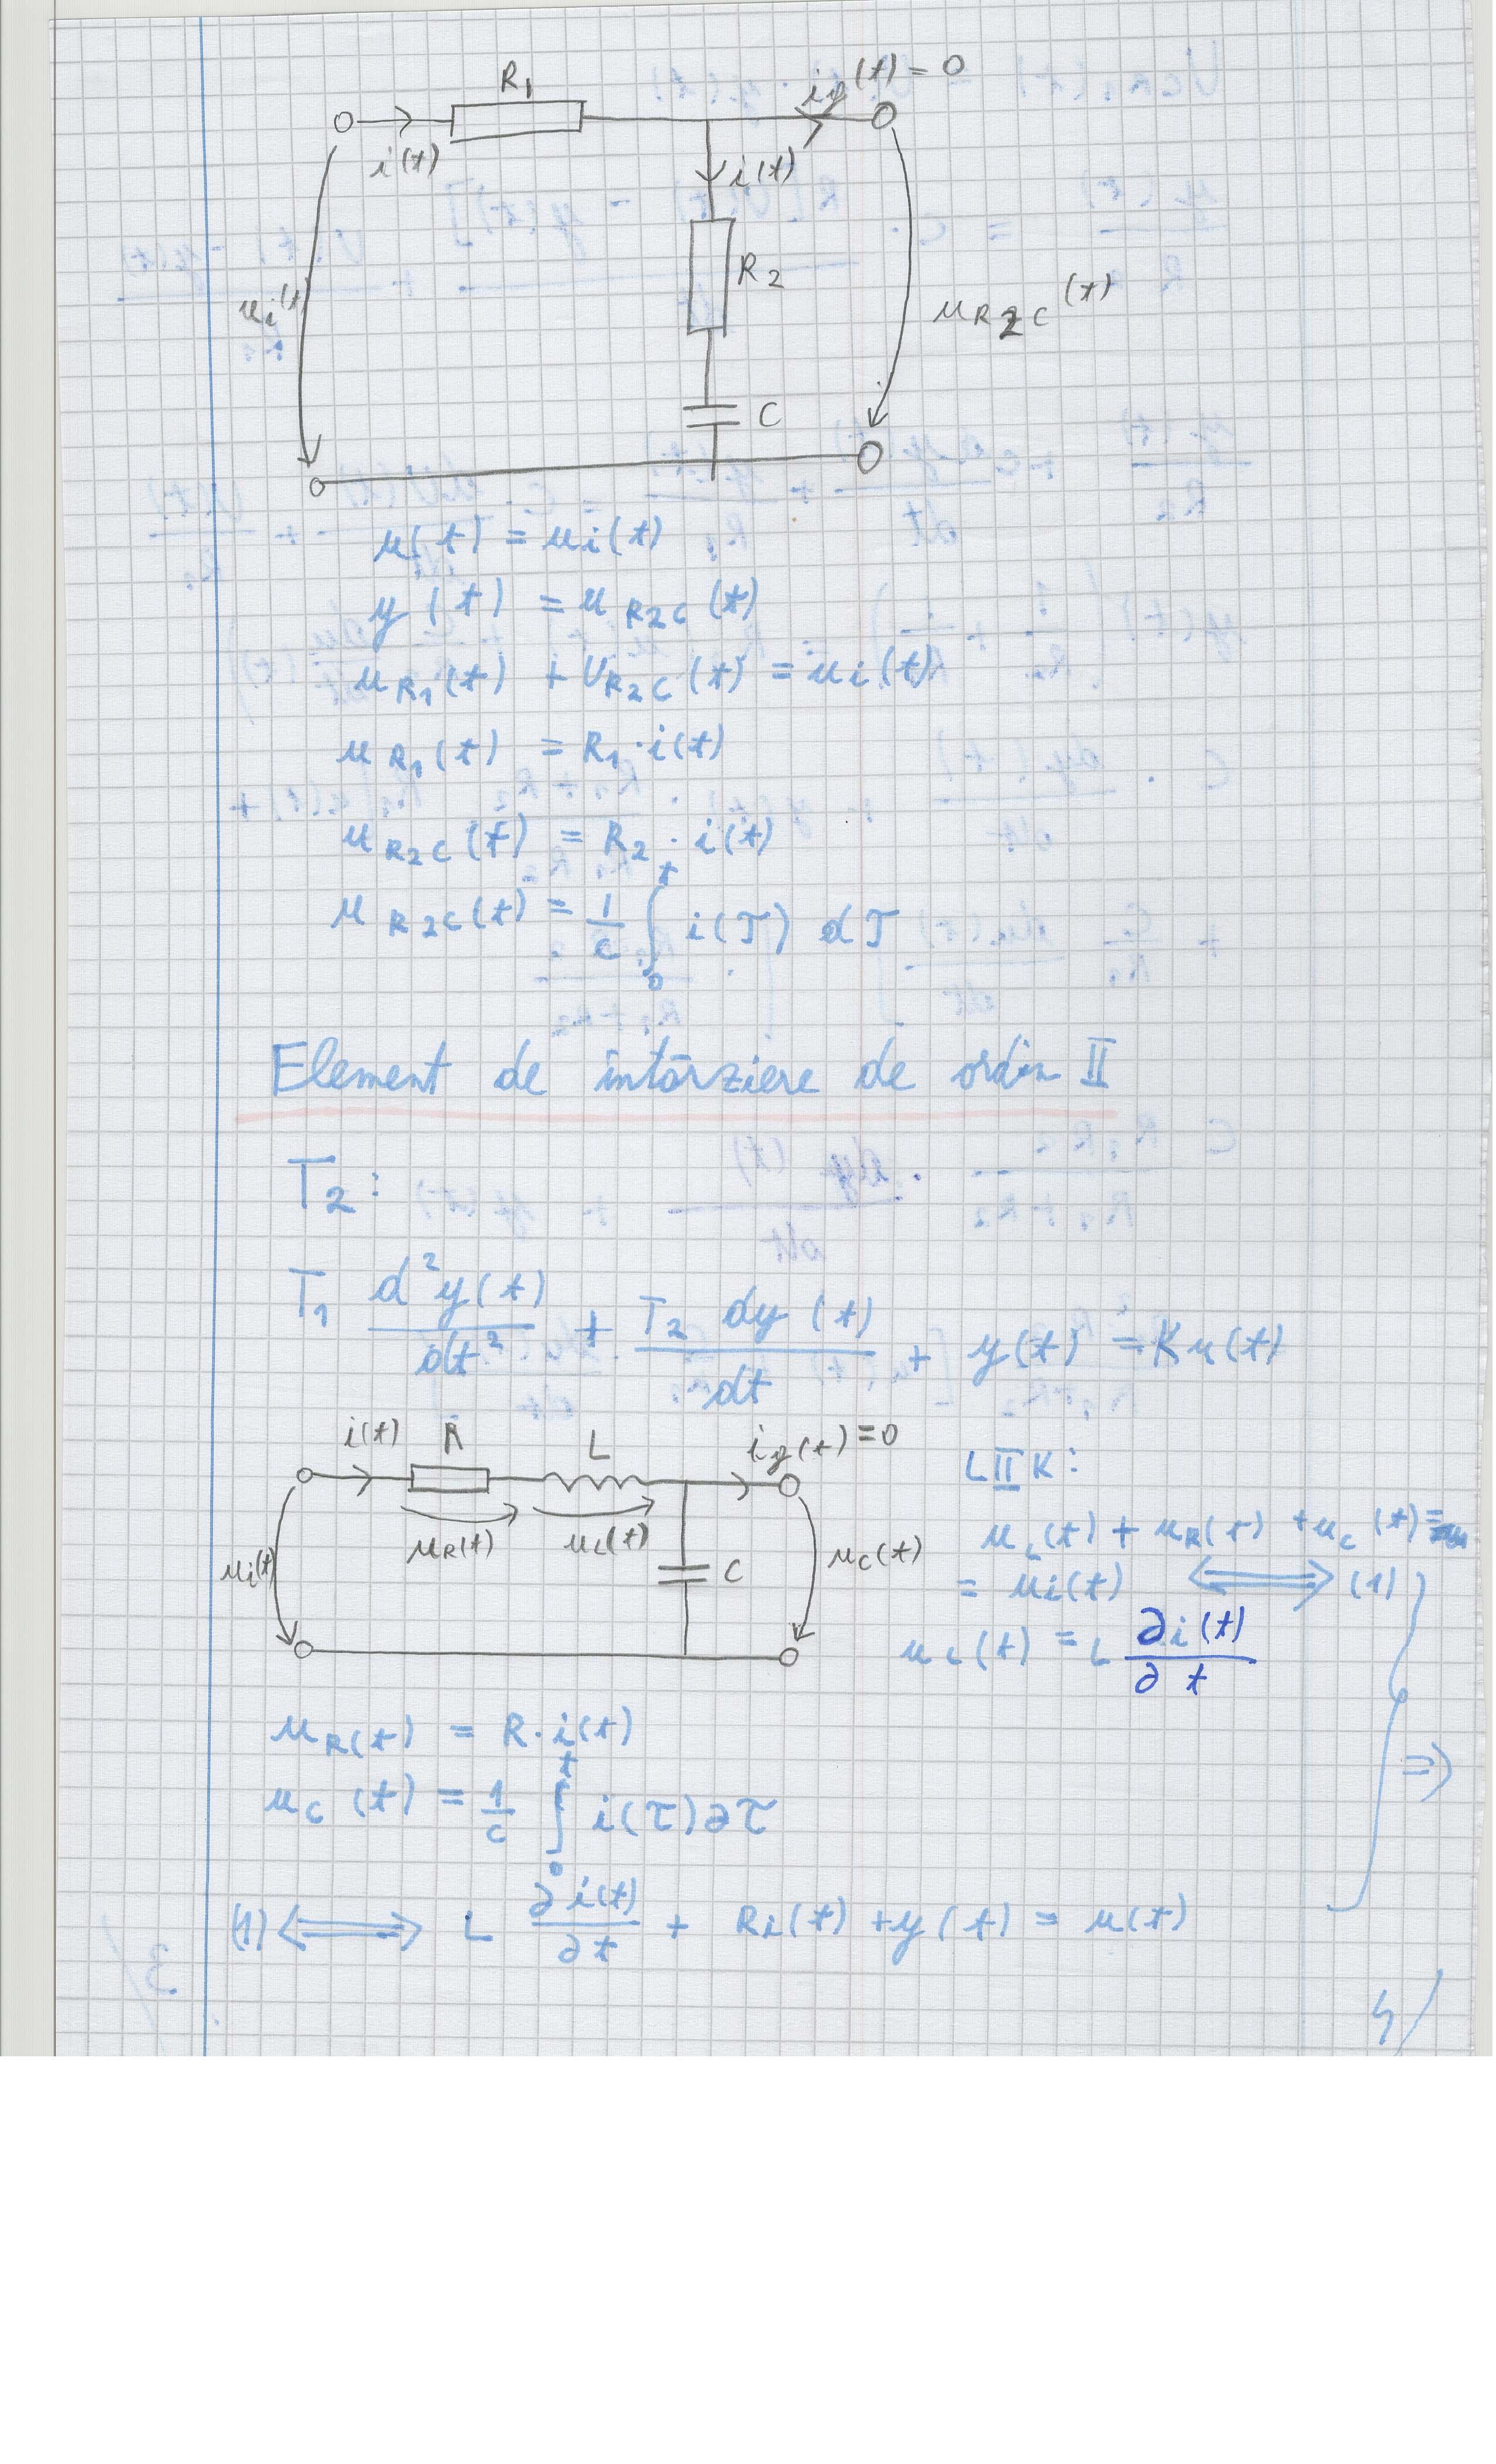 R₁
i_y(t) = 0
i(t)
i(t)
R₂
u_i(t)
u_R2C(t)
C
u(t) = u_i(t)
y(t) = u_R2C(t)
u_R₁(t) + U_R2C(t) = u_i(t)
u_R₁(t) = R₁·i(t)
u_R2C(t) = R₂·i(t)
u_R2C(t) = 1/C ∫₀ᵗ i(τ) dτ
Element de întârziere de ordin II
T₂:
T₁ d²y(t)/dt² + T₂ dy(t)/dt + y(t) = Ku(t)
i(t) R L i_y(t) = 0
u_R(t) u_L(t)
u_i(t) C u_C(t)
LIIK:
u_L(t) + u_R(t) + u_C(t) =
= u_i(t) ⟺ (1)
u_L(t) = L ∂i(t)/∂t
u_R(t) = R·i(t)
u_C(t) = 1/C ∫₀ᵗ i(τ)∂τ
⇒
(1) ⟺ L ∂i(t)/∂t + Ri(t) + y(t) = u(t)
4/